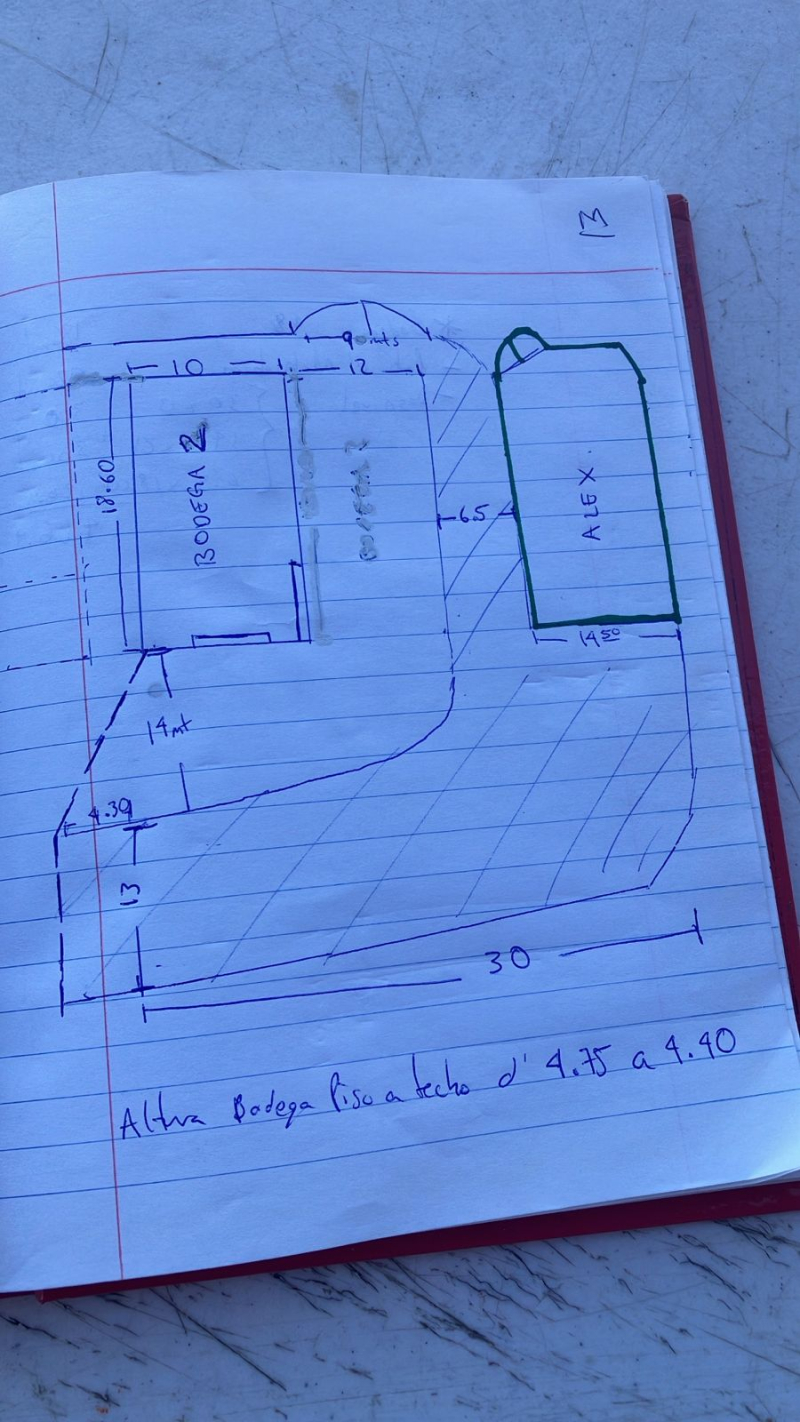 13
9 mts
10
12
18.60
BODEGA 2
BODEGA
ALEX
65
14 50
14 mt
4.39
13
30
Altura Bodega Piso a techo d' 4.75 a 4.40